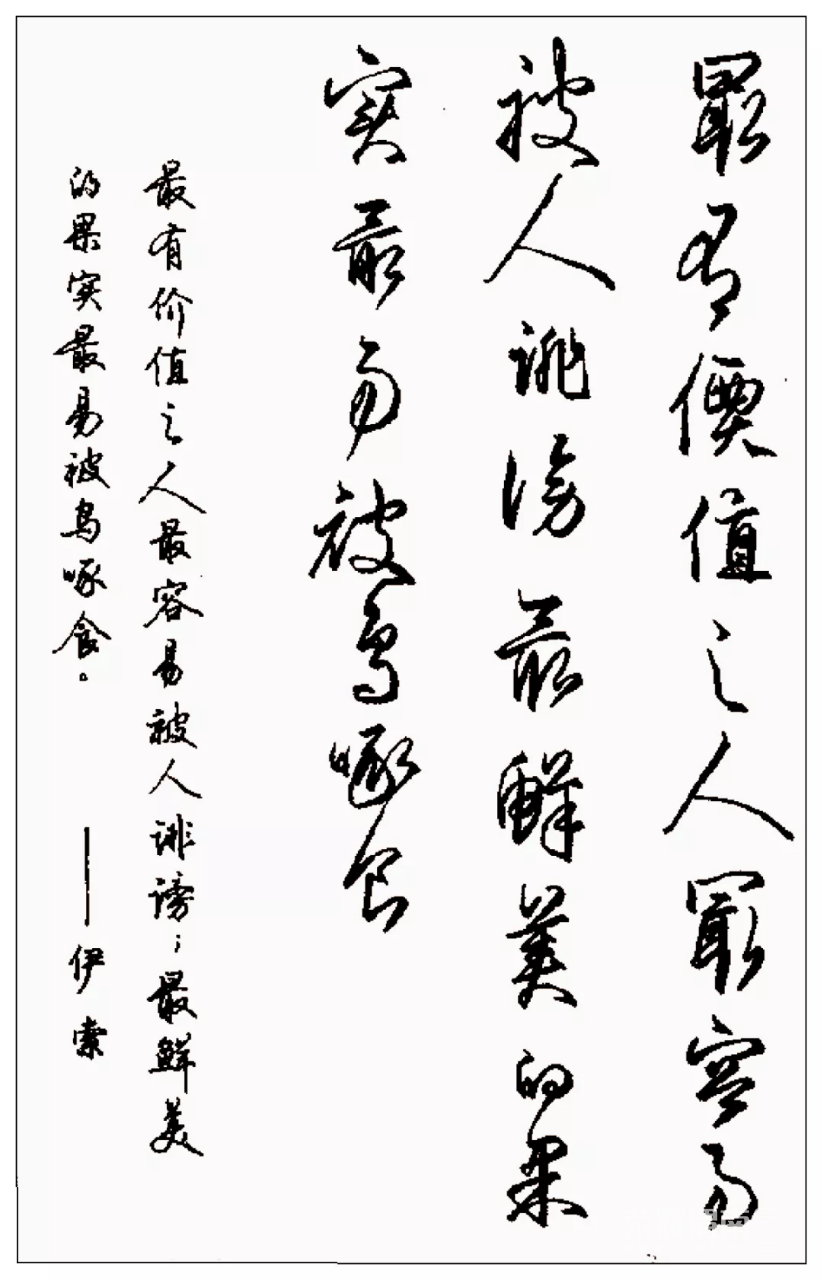 最有價值之人最容易
被人誹謗最鮮美的果
实最易被鸟啄食
最有价值之人最容易被人诽谤；最鲜美
的果实最易被鸟啄食。——伊索